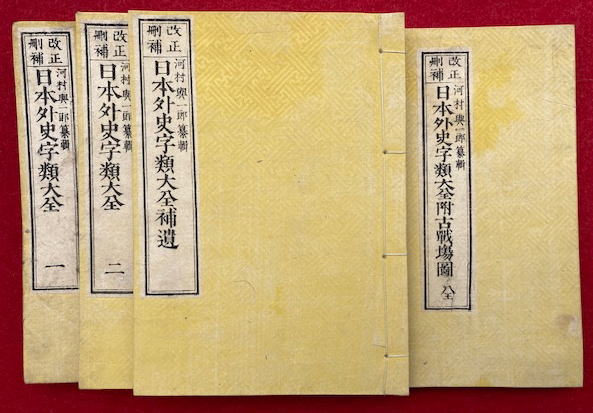 改正
刪補
河村與一郎纂輯
日本外史字類大全 一
改正
刪補
河村與一郎纂輯
日本外史字類大全 二
改正
刪補
河村與一郎纂輯
日本外史字類大全補遺
改正
刪補
河村與一郎纂輯
日本外史字類大全附古戰塲圖 全